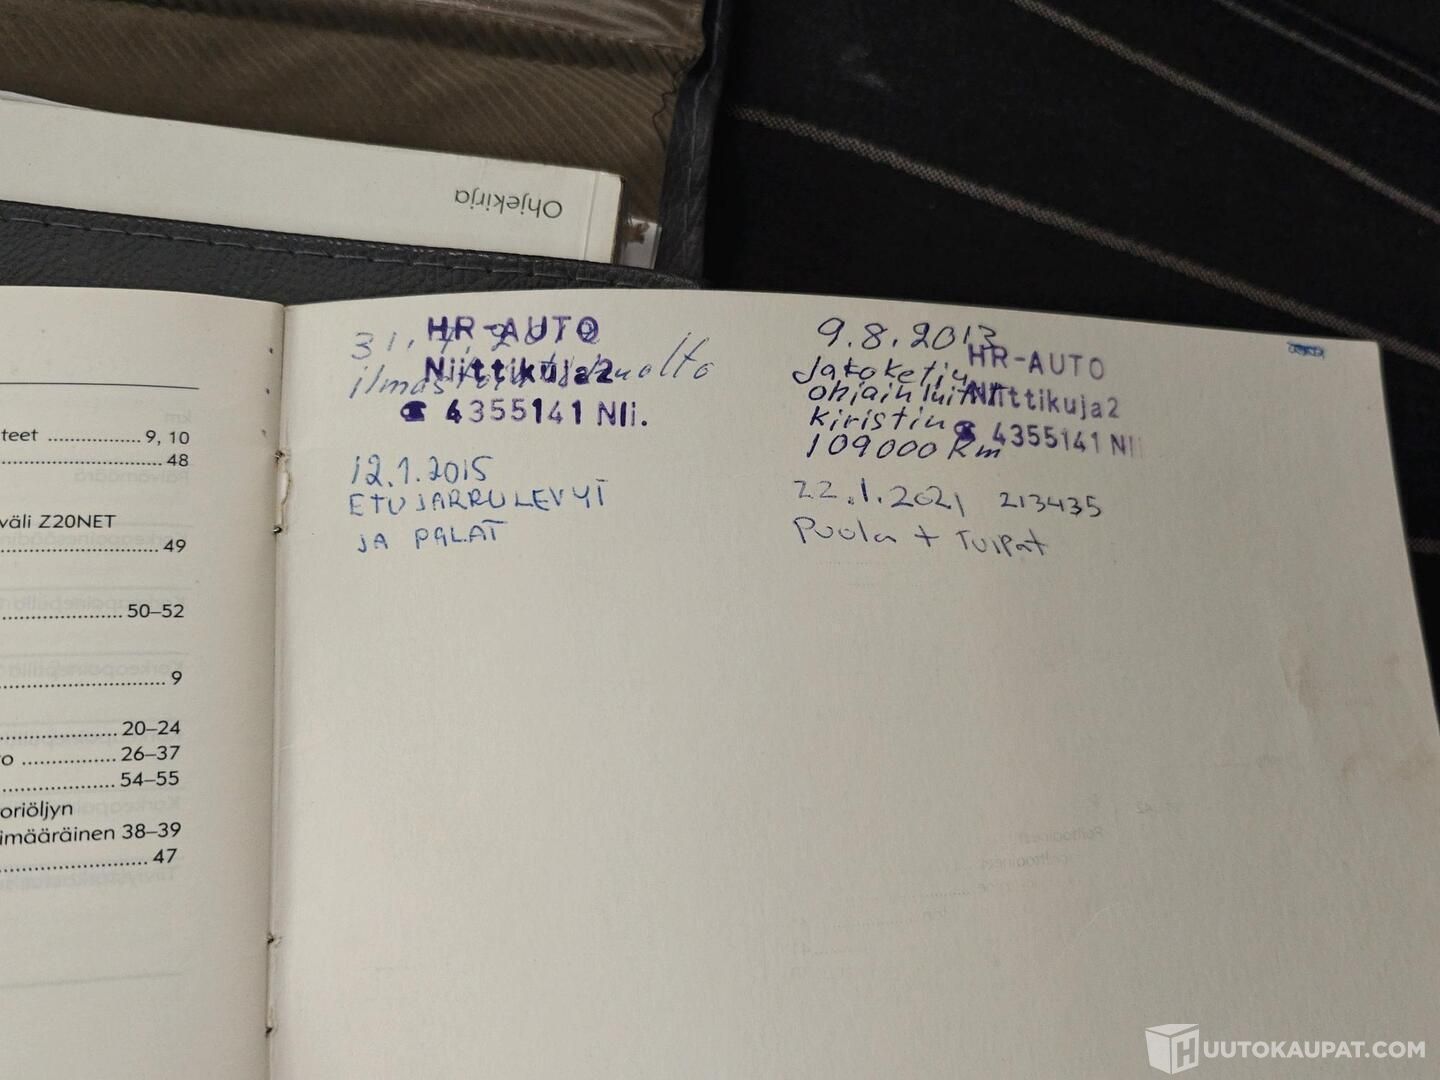 Ohjekirja
teet ................ 9, 10
................ 48
väli Z20NET
................ 49
................ 50–52
................ 9
................ 20–24
o ................ 26–37
................ 54–55
oriöljyn
imääräinen 38–39
................ 47
HR-AUTO
Niittikuja 2
☎ 4355141 Nli.
12.1.2015
ETUJARRULEVYT
JA PALAT
9.8.2013
Jakoketju
kiristin
109000 km
HR-AUTO
Niittikuja 2
☎ 4355141 Nli
22.1.2021 213435
Puola + Tulpat
HUUTOKAUPAT.COM